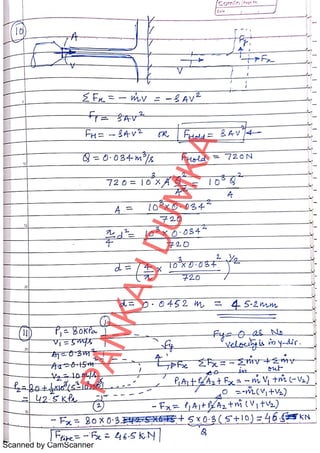 10
A
V
Fp
Fx
V
ΣFx = -ṁv = -ρAV²
Fp = ρAV²
FH = -ρAV² or FHold = ρAV²
Q = 0.034 m³/s FHold = 720N
720 = 10³ × A Q²/A² = 10³ Q²/A
A = 10³×0.034²/720
π/4 d² = 10³×0.034²/720
d = (4/π × 10³×0.034²/720)^1/2
d = 0.0452 m = 45.2mm
11
P1 = 80KPa
V1 = 5m/s
A1 = 0.3m²
A2 = 0.15m
V2 = 10m/s
= 42.5 KPa
Fy
Fy = 0 as No
velocity is in y-dir.
Fx
ΣFx = -Σṁv + Σṁv
in out
P1A1 + P2A2 + Fx = -ṁV1 + ṁ(-V2)
= -ṁ(V1+V2)
-Fx = P1A1 + P2A2 + ṁ(V1+V2)
2
-Fx = 80×0.3 + 5×0.3(5+10) = 46.5 KN
= -Fx = 46.5KN
PANKAJ DUMKA
Scanned by CamScanner